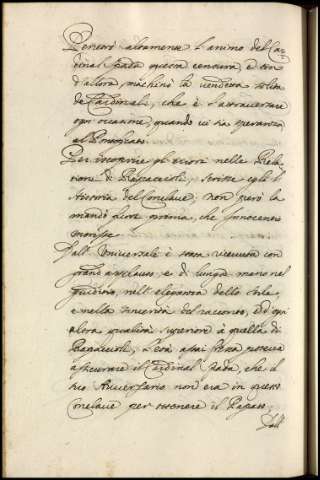 Penetrò altamente l'animo del Car-
dinal Spada questa censura, e sin
d'allora, machinò la vendetta solita
de Cardinali, che è l'attraversare
ogni occasione, quando vi ha speranza
al Ponteficato.
Per ricoprire gl'errori nelle Rela-
tioni di Rapaccioli, scrisse egli l'
Historia del Conclave, non però la
mandò fuori prima, che Innocenzo
morisse.
Dall'Universale è stata ricevuta con
grand'applauso, e di lunga mano nel
giudizio, nell'eleganza dello stile,
e nella sincerità del racconto, et ogni
altra qualità superiore à quella di
Rapaccioli, l'età assai fresca poteva
assicurare il Cardinal Spada, che il
suo Avversario non era in questo
Conclave per ottenere il Papato,
Dall'